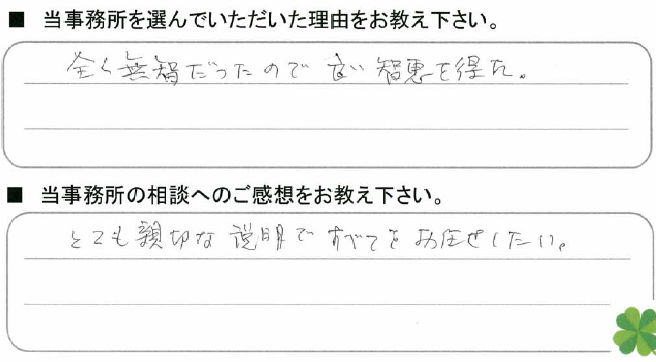 ■ 当事務所を選んでいただいた理由をお教え下さい。
全く無智だったので良い智恵を得た。
■ 当事務所の相談へのご感想をお教え下さい。
とても親切な説明ですべてをお任せしたい。